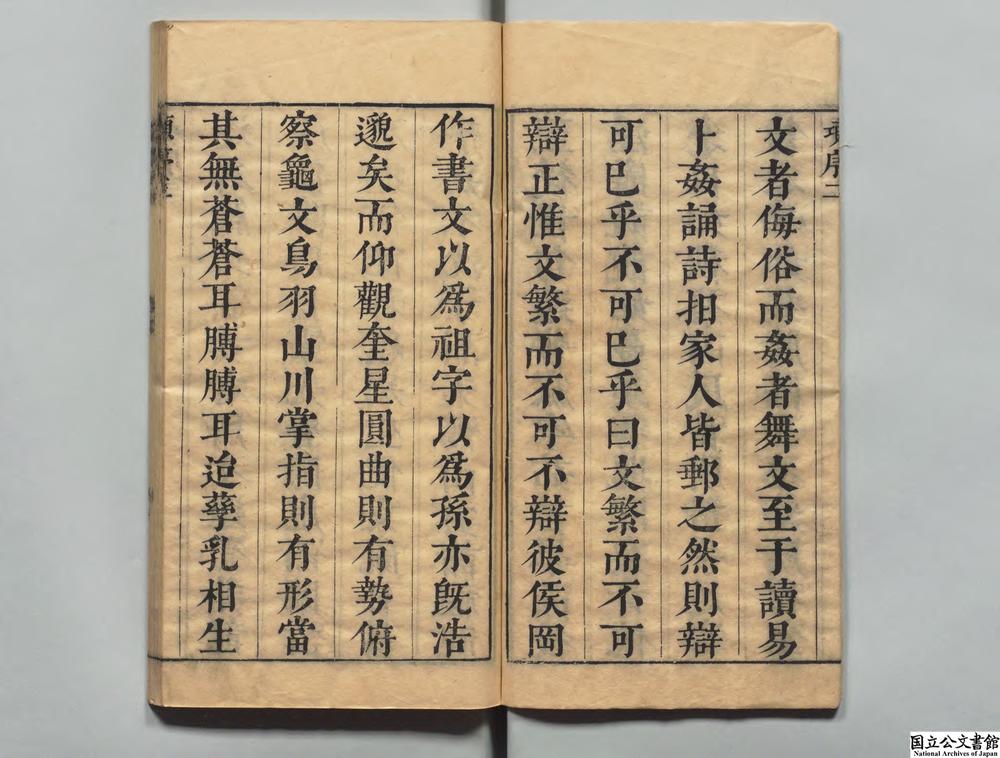 文者侮俗而姦者舞文至于讀易
卜姦誦詩抇家人皆郵之然則辯
可已乎不可已乎曰文繁而不可
辯正惟文繁而不可不辯彼侯岡
作書文以爲祖字以爲孫亦旣浩
邈矣而仰觀奎星圓曲則有勢俯
察龜文鳥羽山川掌指則有形當
其無蒼蒼耳膊膊耳迨孳乳相生
国立公文書館
National Archives of Japan